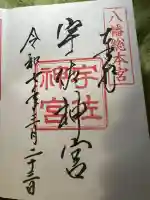 八幡総本宮
奉拝
宇佐神宮
宇佐
神宮
令和七年三月二十三日